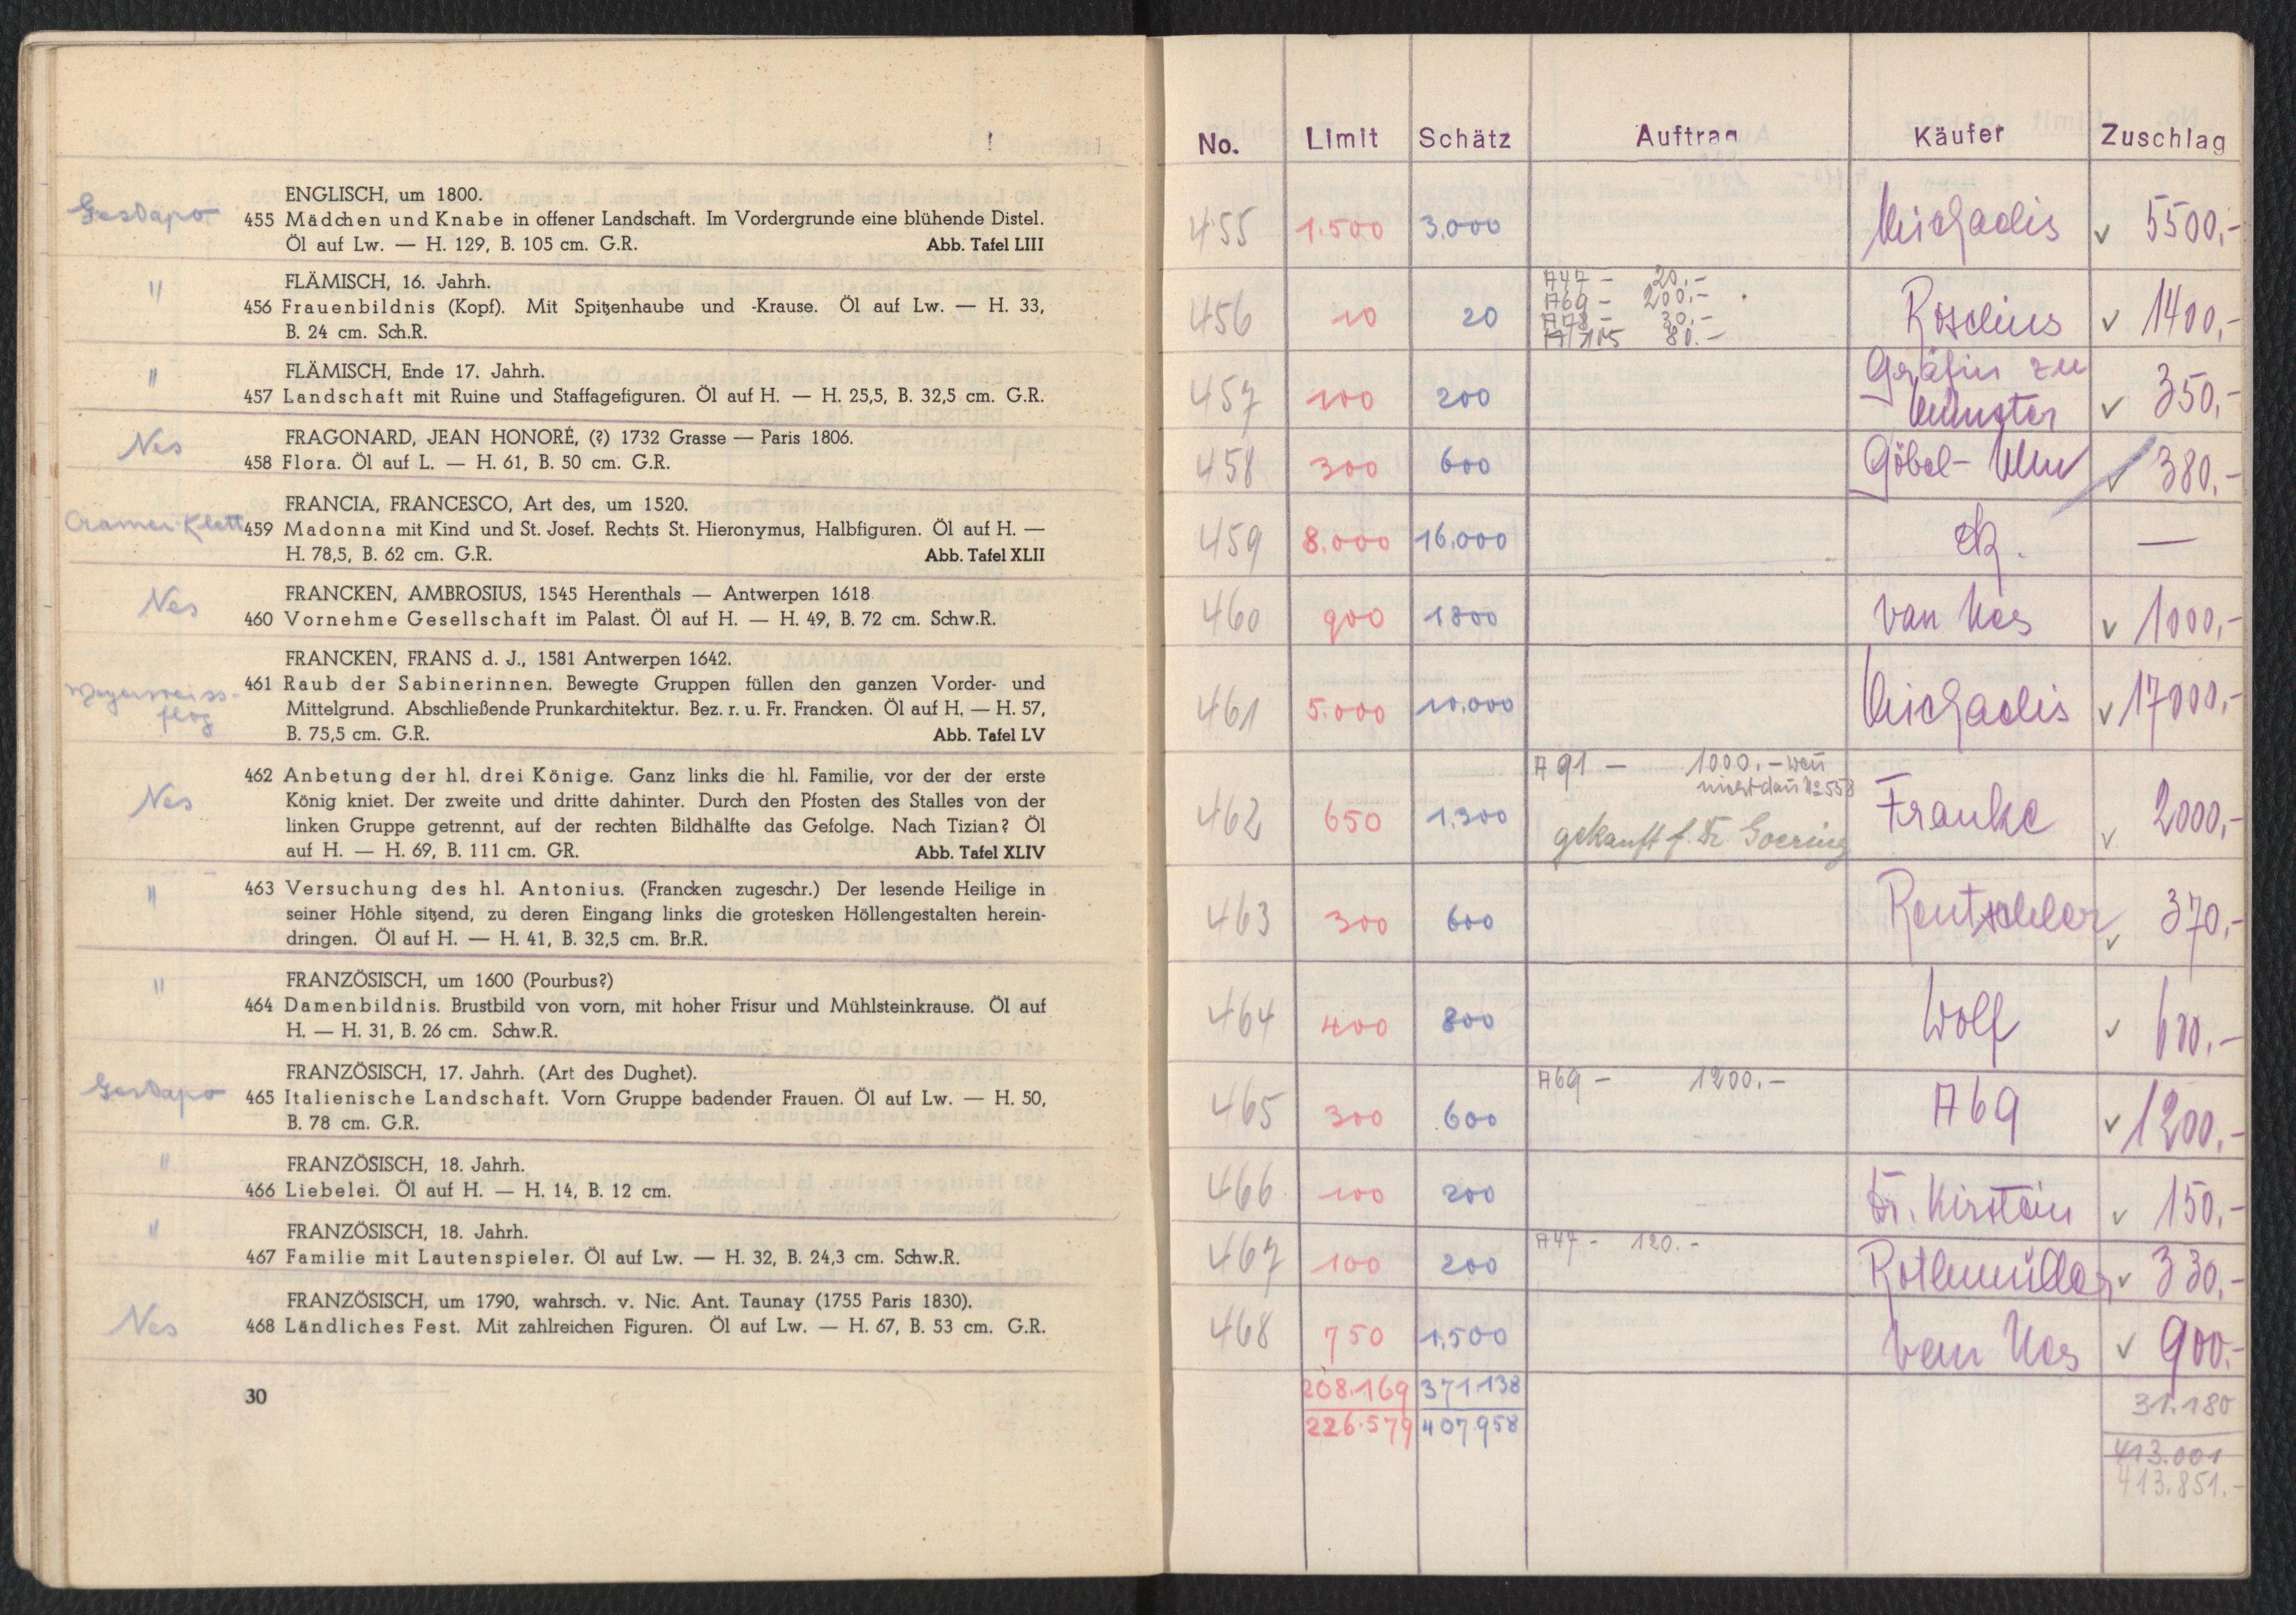 Gestapo
ENGLISCH, um 1800.
455 Mädchen und Knabe in offener Landschaft. Im Vordergrunde eine blühende Distel.
Öl auf Lw. — H. 129, B. 105 cm. G.R. Abb. Tafel LIII
"
FLÄMISCH, 16. Jahrh.
456 Frauenbildnis (Kopf). Mit Spitzenhaube und -Krause. Öl auf Lw. — H. 33,
B. 24 cm. Sch.R.
"
FLÄMISCH, Ende 17. Jahrh.
457 Landschaft mit Ruine und Staffagefiguren. Öl auf H. — H. 25,5, B. 32,5 cm. G.R.
Nes
FRAGONARD, JEAN HONORÉ, (?) 1732 Grasse — Paris 1806.
458 Flora. Öl auf L. — H. 61, B. 50 cm. G.R.
Cramer-Klett
FRANCIA, FRANCESCO, Art des, um 1520.
459 Madonna mit Kind und St. Josef. Rechts St. Hieronymus, Halbfiguren. Öl auf H. —
H. 78,5, B. 62 cm. G.R. Abb. Tafel XLII
Nes
FRANCKEN, AMBROSIUS, 1545 Herenthals — Antwerpen 1618
460 Vornehme Gesellschaft im Palast. Öl auf H. — H. 49, B. 72 cm. Schw.R.
FRANCKEN, FRANS d. J., 1581 Antwerpen 1642.
461 Raub der Sabinerinnen. Bewegte Gruppen füllen den ganzen Vorder- und
Mittelgrund. Abschließende Prunkarchitektur. Bez. r. u. Fr. Francken. Öl auf H. — H. 57,
B. 75,5 cm. G.R. Abb. Tafel LV
Nes
462 Anbetung der hl. drei Könige. Ganz links die hl. Familie, vor der der erste
König kniet. Der zweite und dritte dahinter. Durch den Pfosten des Stalles von der
linken Gruppe getrennt, auf der rechten Bildhälfte das Gefolge. Nach Tizian? Öl
auf H. — H. 69, B. 111 cm. GR. Abb. Tafel XLIV
"
463 Versuchung des hl. Antonius. (Francken zugeschr.) Der lesende Heilige in
seiner Höhle sitzend, zu deren Eingang links die grotesken Höllengestalten herein-
dringen. Öl auf H. — H. 41, B. 32,5 cm. Br.R.
"
FRANZÖSISCH, um 1600 (Pourbus?)
464 Damenbildnis. Brustbild von vorn, mit hoher Frisur und Mühlsteinkrause. Öl auf
H. — H. 31, B. 26 cm. Schw.R.
Gestapo
FRANZÖSISCH, 17. Jahrh. (Art des Dughet).
465 Italienische Landschaft. Vorn Gruppe badender Frauen. Öl auf Lw. — H. 50,
B. 78 cm. G.R.
"
FRANZÖSISCH, 18. Jahrh.
466 Liebelei. Öl auf H. — H. 14, B. 12 cm.
"
FRANZÖSISCH, 18. Jahrh.
467 Familie mit Lautenspieler. Öl auf Lw. — H. 32, B. 24,3 cm. Schw.R.
Nes
FRANZÖSISCH, um 1790, wahrsch. v. Nic. Ant. Taunay (1755 Paris 1830).
468 Ländliches Fest. Mit zahlreichen Figuren. Öl auf Lw. — H. 67, B. 53 cm. G.R.
30
No. Limit Schätz Auftrag Käufer Zuschlag
455 1.500 3.000 Michaelis v 5500,-
A47 - 20.-
A69 - 200.-
A78 - 30.-
A/105 80.-
456 10 20 Roselius v 1400,-
457 100 200 Gräfin zu
Münster v 350,-
458 300 600 Göbel-Ulm v 380,-
459 8.000 16.000 —
460 900 1800 van Nes v 1000,-
461 5.000 10.000 Michaelis v 17000,-
A 91 - 1000.- wenn
nicht dann No 558
462 650 1.300 Franke v 2000,-
gekauft f. Dr Goering
463 300 600 Rentschler v 370,-
464 400 800 Wolf v 600,-
A69 - 1200.-
465 300 600 A69 v 1200,-
466 100 200 Dr. Kirstein v 150,-
A47 - 120.-
467 100 200 Rothmüller v 330,-
468 750 1.500 van Nes v 900.-
208.169 371.138 31.180
226.579 407.958
413.001
413.851.-